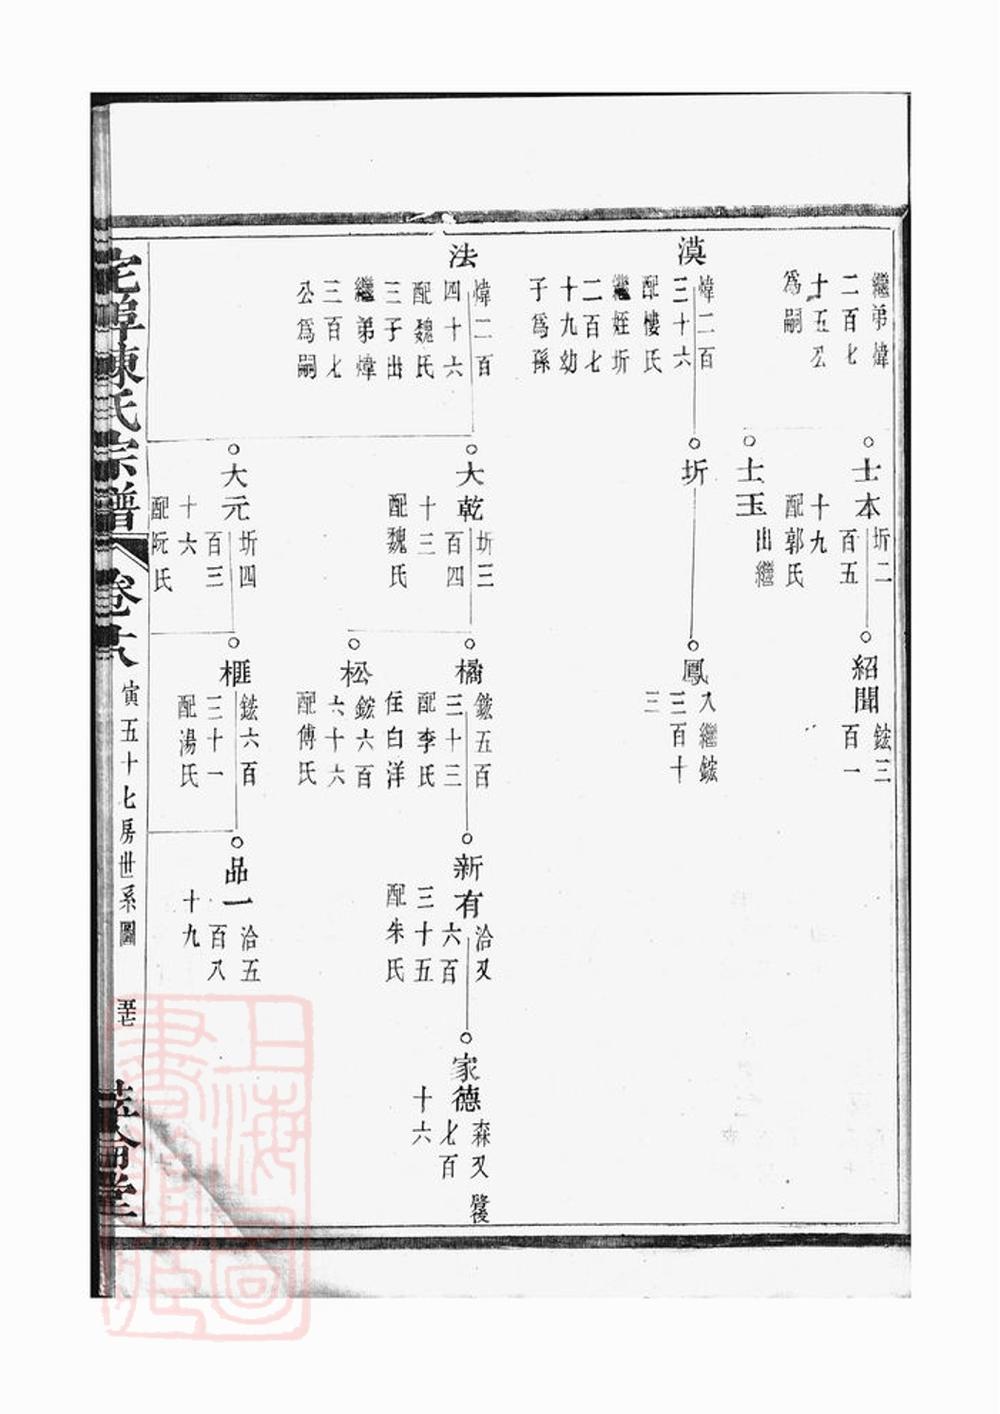 繼弟煒
二百七
十五公
為嗣
漠
煒二百
三十六
配樓氏
繼姪圻
二百七
十九幼
子為孫
法
煒二百
四十六
配魏氏
三子出
繼弟煒
三百七
公為嗣
士本
圻二
百五
十九
配郭氏
士玉
出繼
圻
大乾
圻三
百四
十三
配魏氏
大元
圻四
百三
十六
配阮氏
紹聞
鋐三
百一
鳳
入繼鋐
三百十
三
橘
鋐五百
三十三
配李氏
住白洋
松
鋐六百
六十六
配傅氏
榧
鋐六百
三十一
配湯氏
新有
洽又
六百
三十五
配朱氏
品一
洽五
百八
十九
家德
森又
七百
十六
宅埠陳氏宗譜
卷十八
寅五十七房世系圖
五十七
堂
上海圖書館藏